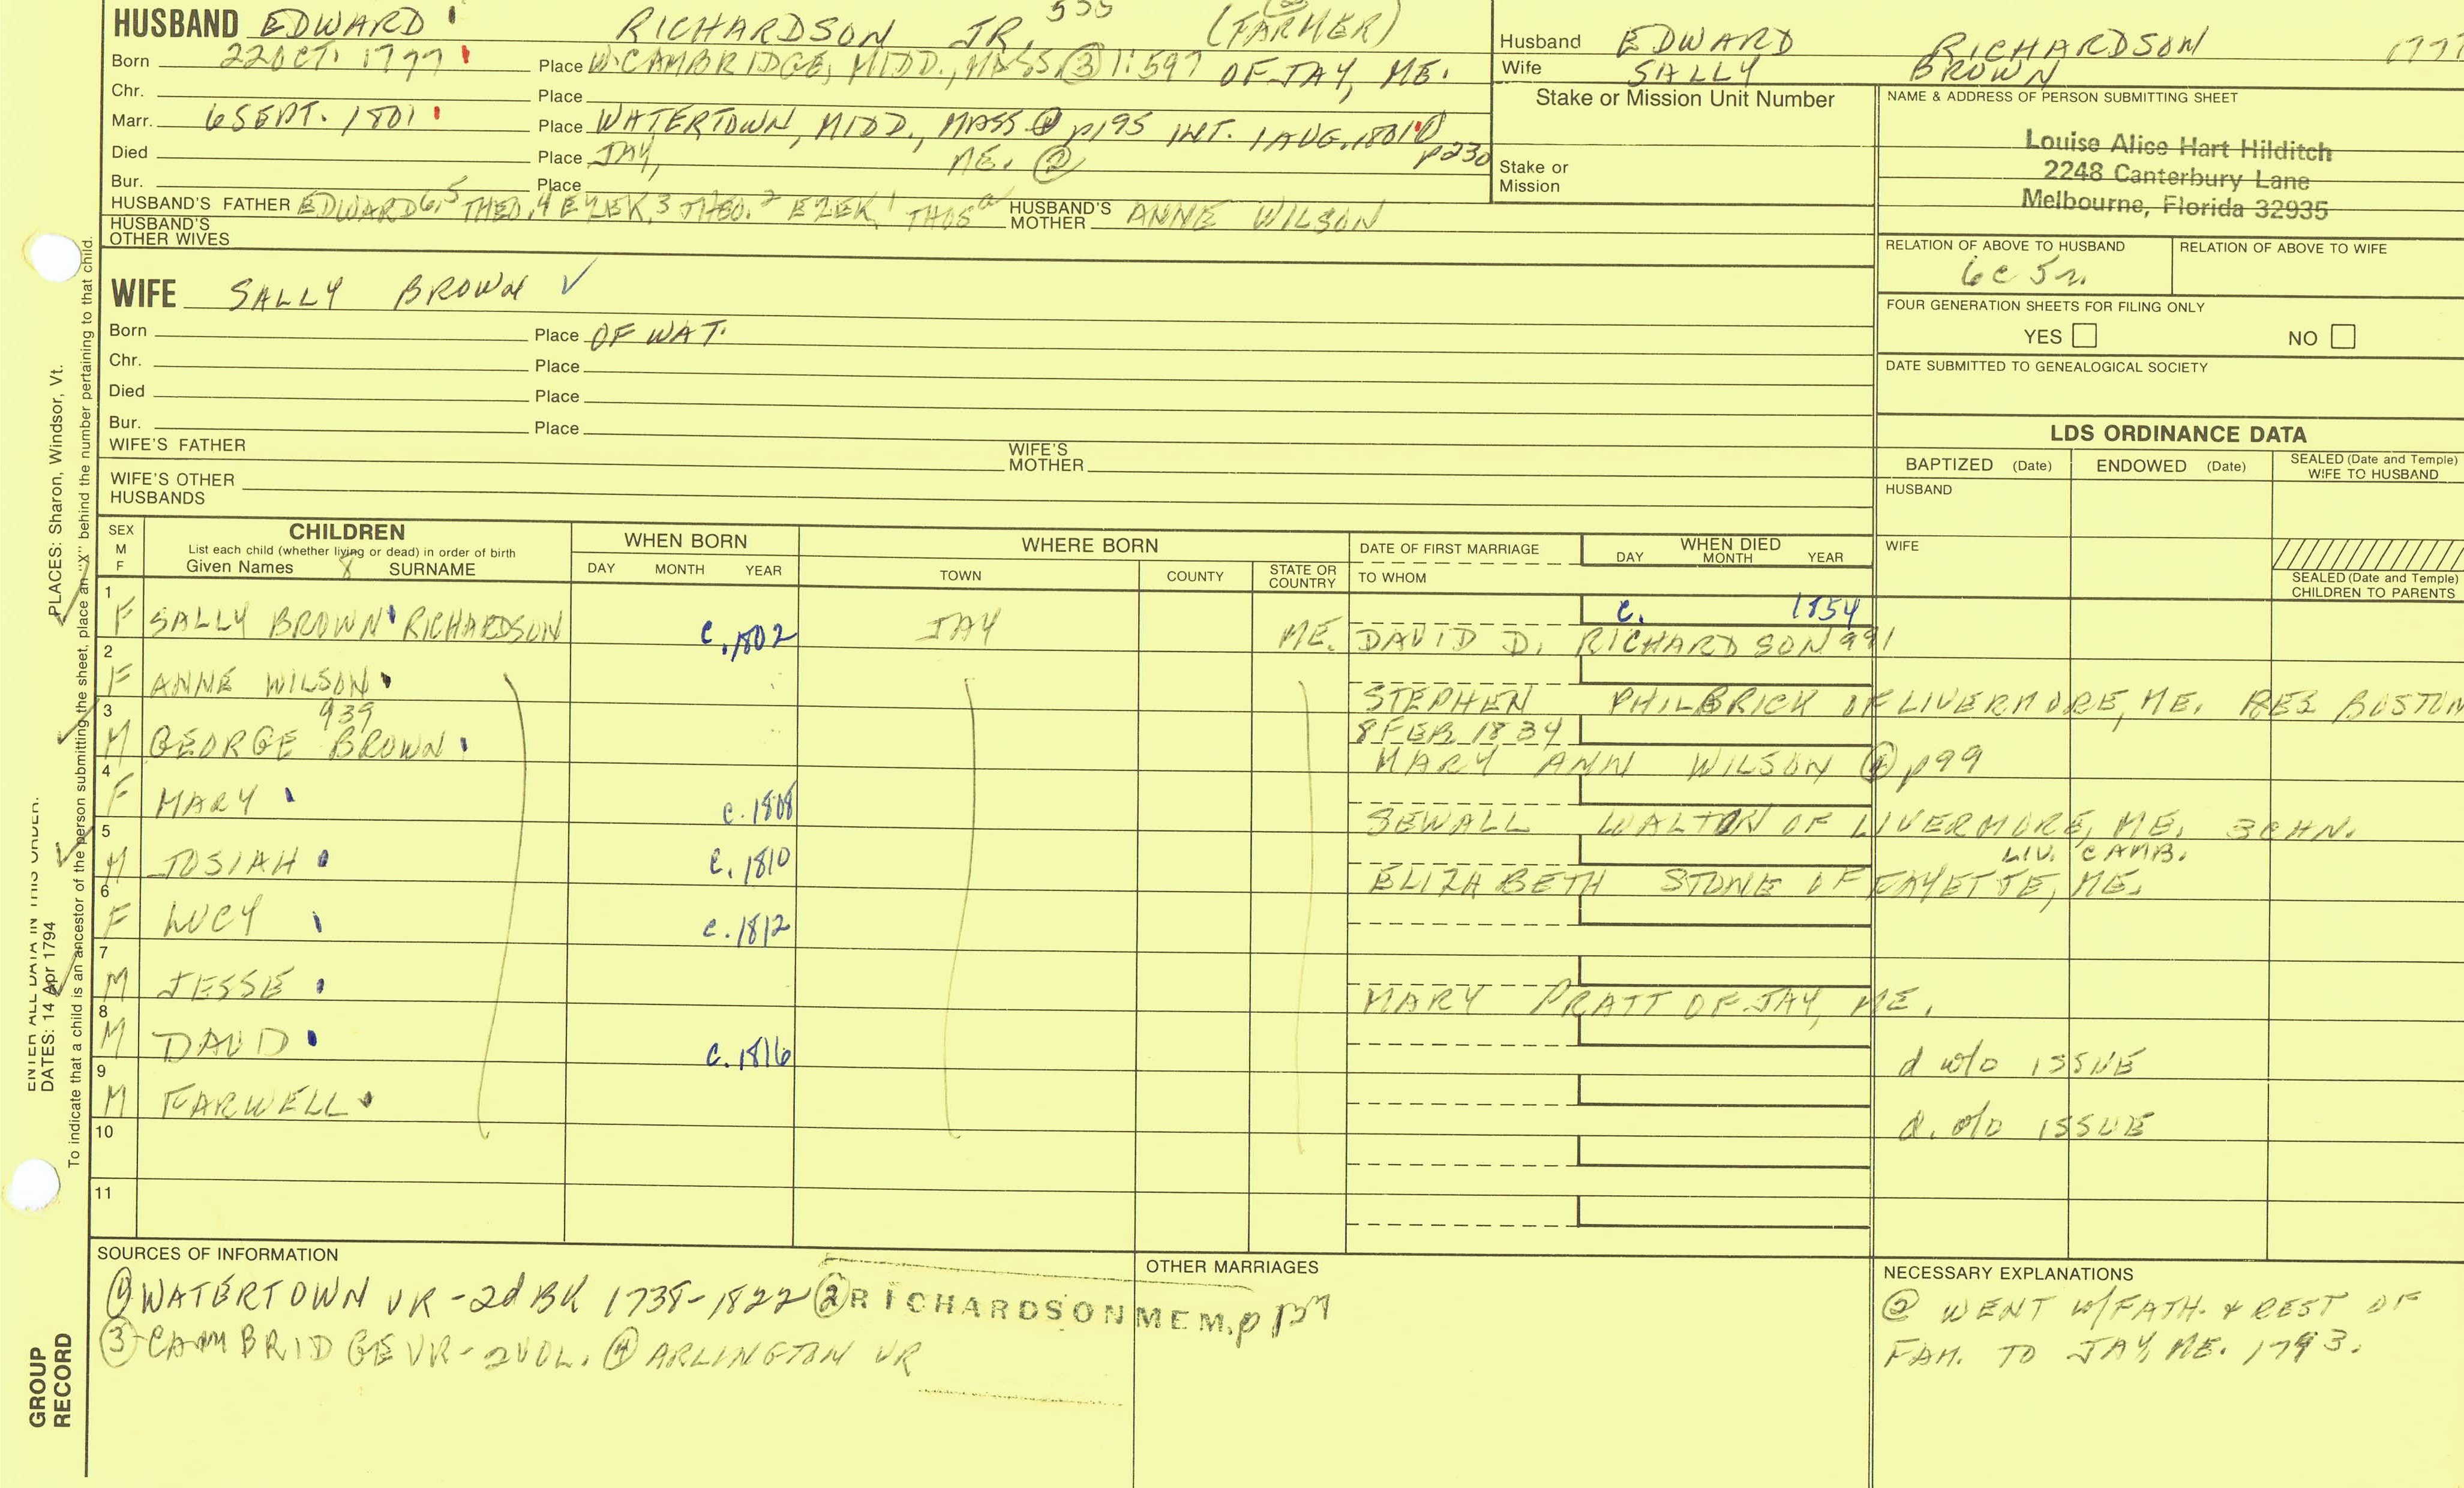 HUSBAND EDWARD RICHARDSON JR. 533 (FARMER)
Born 22 OCT. 1777 Place W. CAMBRIDGE, MIDD., MASS. ③ 1:597 OF JAY, ME.
Chr. Place
Marr. 6 SEPT. 1801 Place WATERTOWN, MIDD., MASS ④ p195 INT. 1 AUG. 1801 ① p230
Died Place JAY, ME. ②
Bur. Place
HUSBAND'S FATHER EDWARD 6,5 THEO, 4 EZEK, 3 THEO. 2 EZEK, 1 THOS a HUSBAND'S MOTHER ANNE WILSON
HUSBAND'S OTHER WIVES
Husband EDWARD RICHARDSON 1777
Wife SALLY BROWN
Stake or Mission Unit Number
Stake or Mission
NAME & ADDRESS OF PERSON SUBMITTING SHEET
Louise Alice Hart Hilditch
2248 Canterbury Lane
Melbourne, Florida 32935
RELATION OF ABOVE TO HUSBAND RELATION OF ABOVE TO WIFE
6c 5r.
FOUR GENERATION SHEETS FOR FILING ONLY
YES NO
DATE SUBMITTED TO GENEALOGICAL SOCIETY
WIFE SALLY BROWN ✓
Born Place OF WAT.
Chr. Place
Died Place
Bur. Place
WIFE'S FATHER WIFE'S MOTHER
WIFE'S OTHER HUSBANDS
LDS ORDINANCE DATA
BAPTIZED (Date) ENDOWED (Date) SEALED (Date and Temple) WIFE TO HUSBAND
HUSBAND
WIFE
SEALED (Date and Temple) CHILDREN TO PARENTS
SEX M F
CHILDREN
List each child (whether living or dead) in order of birth
Given Names 8 SURNAME
WHEN BORN
DAY MONTH YEAR
WHERE BORN
TOWN COUNTY STATE OR COUNTRY
DATE OF FIRST MARRIAGE
TO WHOM
WHEN DIED
DAY MONTH YEAR
1 F SALLY BROWN RICHARDSON c. 1802 JAY ME. c. 1854
DAVID D. RICHARDSON 991
2 F ANNE WILSON
STEPHEN PHILBRICK OF LIVERMORE, ME. RES BOSTON
3 M GEORGE BROWN 939 8 FEB 1834
MARY ANN WILSON ④ p99
4 F MARY c. 1808
SEWALL WALTON OF LIVERMORE, ME. 3 CHN.
5 M JOSIAH c. 1810 LIV. CAMB.
ELIZABETH STONE OF FAYETTE, ME.
6 F LUCY c. 1812
7 M JESSE
MARY PRATT OF JAY, ME.
8 M DAVID c. 1816
d w/o ISSUE
9 M FARWELL
d. w/o ISSUE
10
11
SOURCES OF INFORMATION
① WATERTOWN VR - 2d BK 1738-1822 ② RICHARDSON MEM. p 137
③ CAMBRIDGE VR - 2 VOL. ④ ARLINGTON VR
OTHER MARRIAGES
NECESSARY EXPLANATIONS
② WENT W/FATH. & REST OF
FAM. TO JAY, ME. 1793.
PLACES: Sharon, Windsor, Vt.
To indicate that a child is an ancestor of the person submitting the sheet, place an "X" behind the number pertaining to that child.
ENTER ALL DATA IN THIS ORDER:
DATES: 14 Apr 1794
GROUP
RECORD